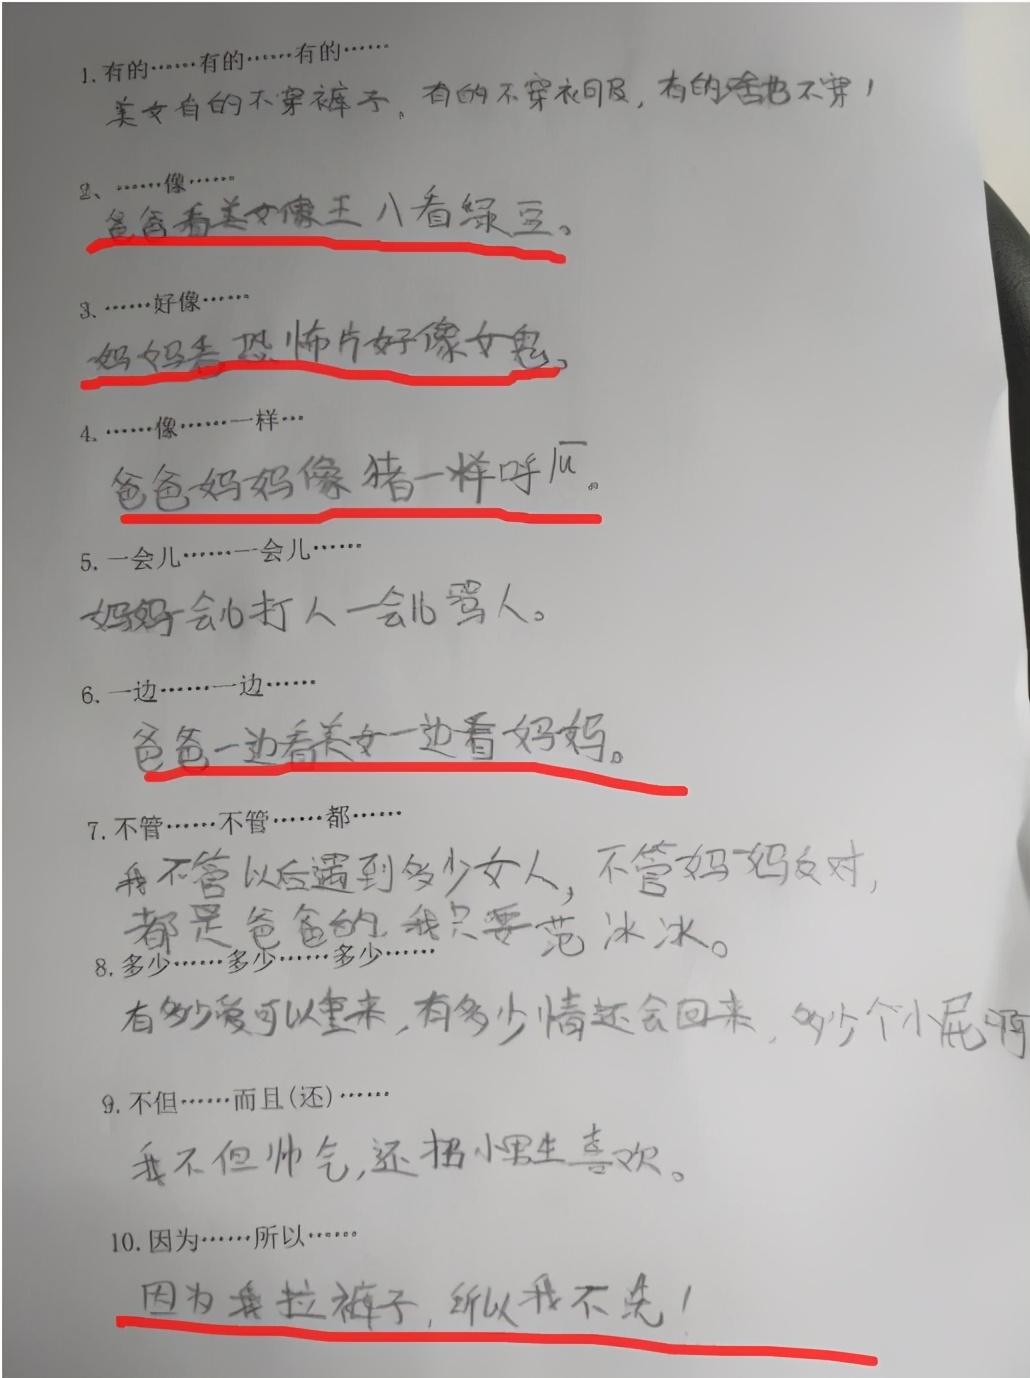 1.有的……有的……有的……
美女有的不穿裤子。有的不穿衣服，有的啥也不穿！
2、……像……
爸爸看美女像王八看绿豆。
3.……好像……
妈妈看恐怖片好像女鬼。
4.……像……一样…
爸爸妈妈像猪一样呼。
5.一会儿……一会儿……
妈妈一会儿打人一会儿骂人。
6.一边……一边……
爸爸一边看美女一边看妈妈。
7.不管……不管……都……
我不管以后遇到多少女人，不管妈妈反对，
都是爸爸的，我只要范冰冰。
8.多少……多少……多少……
有多少爱可以重来，有多少情还会回来，多少个小屁啊
9.不但……而且(还)……
我不但帅气，还招小男生喜欢。
10.因为……所以……
因为我拉裤子，所以我不洗！